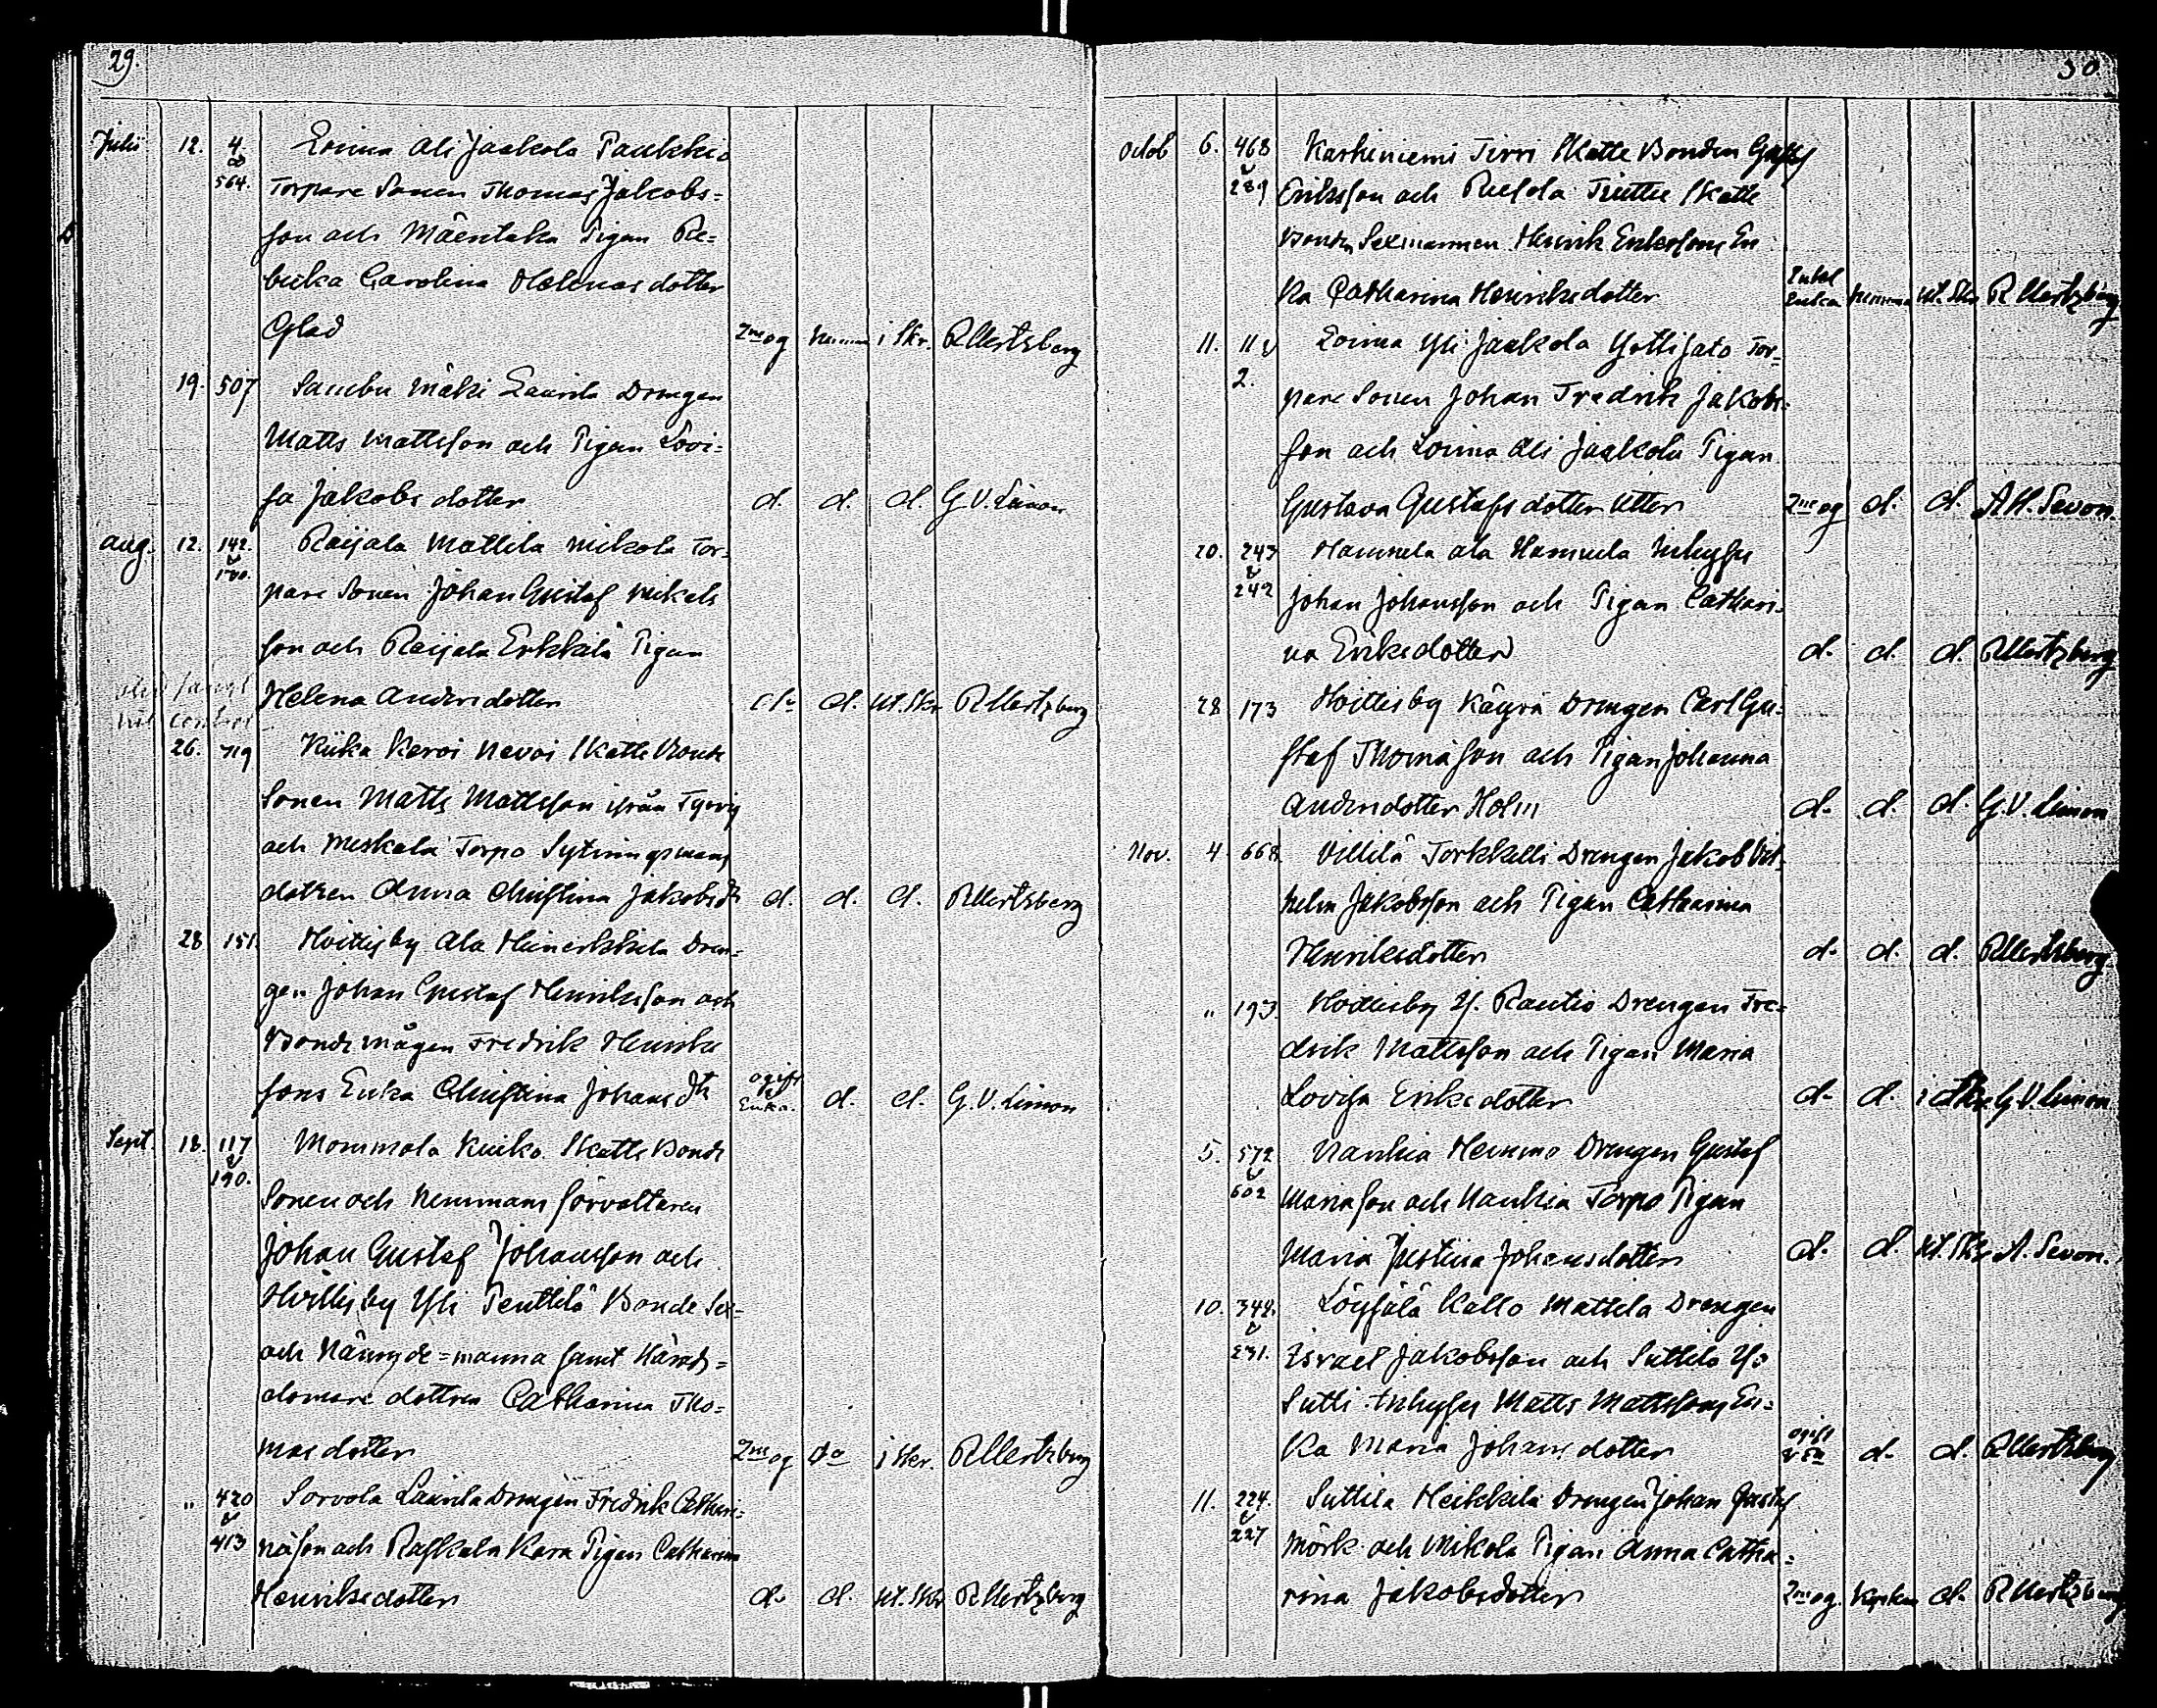 29.
Julii 12. 4. & 564. Loima Ali Jaakola Paukkio
Torpare Sonen Thomas Jakobs=
son och Mäentaka Pigan Re=
becka Carolina Helenasdotter
Glad 2ne og hemma i Skr. R Mertzberg
19. 507 Sambu Mäki Laurila Drengen
Matts Mattsson och Pigan Lovi=
sa Jakobsdotter d. d. d. G. V. Limon
Aug. 12. 142. & Raijala Mattila Mikola Tor=
pare Sonen Johan Gustaf Mikels
son och Raijala Erkkilä Pigan
Helena Andersdotter d. ut. Skr R Mertzberg
26. 719 Kiika Keroi Nevoi Skatte Bonde
Sonen Matts Mattsson ifrån Tyrvis
och Meskala Torpo Sytningsmans
dottren Anna Christina Jakobsdr d. d. d. R Mertzberg
28 151. Hvittisby Ala Heinerkkilä Dren=
gen Johan Gustaf Henriksson och
Bonde mågen Fredrik Henriks
sons Enka Christina Johansdr ogift & Enka. d. d. G. V. Limon
Sept. 18. 117 & 190. Mommola Kuiko Skatte Bonde
Sonen och Hemmans förvaltaren
Johan Gustaf Johansson och
Hvittisby Yli Penttilä Bonde Sex=
och Nämnde=manna samt Härads=
domare dottren Catharina Tho=
masdotter 2ne og do i Skr. R Mertzberg
" 420 & 413 Sorvola Laurila Drengen Fredrik Cathari=
näson och Raskala Kara Pigan Catharina
Henriksdotter d. d. ut. Skr R Mertzberg
30
Octob 6. 468 & 289 Karhiniemi Jirri Skatte Bonden Gustaf
Eriksson och Skatte
Bonden Sexmannen Henrik Erikssons En
ka Catharina Henriksdotter Enkl Enka hemma ut. Skr R Mertzberg
11. 11 & 2. Loima Yli Jaakola Tor=
pare Sonen Johan Fredrik Jakobs=
son och Loima Ali Jaakola Pigan
Gustava Gustafsdotter Utter 2ne og d. d. A H. Sevon.
20. 243 & 242 Hannula Ala Hannula Inhyses
Johan Johansson och Pigan Cathari=
na Eriksdotter d. d. d. R Mertzberg
28 173 Hvittisby Käyrä Drengen Carl Gu=
staf Thomasson och Pigan Johanna
Andersdotter Holm d. d. d. G. V. Limon
Nov. 4 668. Villilä Torkkelli Drengen Jakob Vil=
helm Jakobsson och Pigan Catharina
Henriksdotter d. d. d. R Mertzberg
" 193. Hvittisby Y. Rautio Drengen Fre=
drik Mattsson och Pigan Maria
Lovisa Eriksdotter d. d. i Skr G. V. Limon
5. 572 & 602 Nanhia Heinmo Drengen Gustaf
Mariason och Nanhia Torpo Pigan
Maria Justina Johansdotter d. d. ut. Skr A. Sevon.
10. 348. & 231. Löysälä Kallo Mattila Drengen
Israel Jakobsson och Suttila Y.
Sutti Inhyses Matts Mattssons En=
ka Maria Johansdotter ogift & En d. d. R Mertzberg
11. 224. & 227 Suttila Heikkilä Drengen Johan Gustaf
Mörk och Mikola Pigan Anna Catha=
rina Jakobsdotter 2ne og. Kyrkan d. R Mertzberg